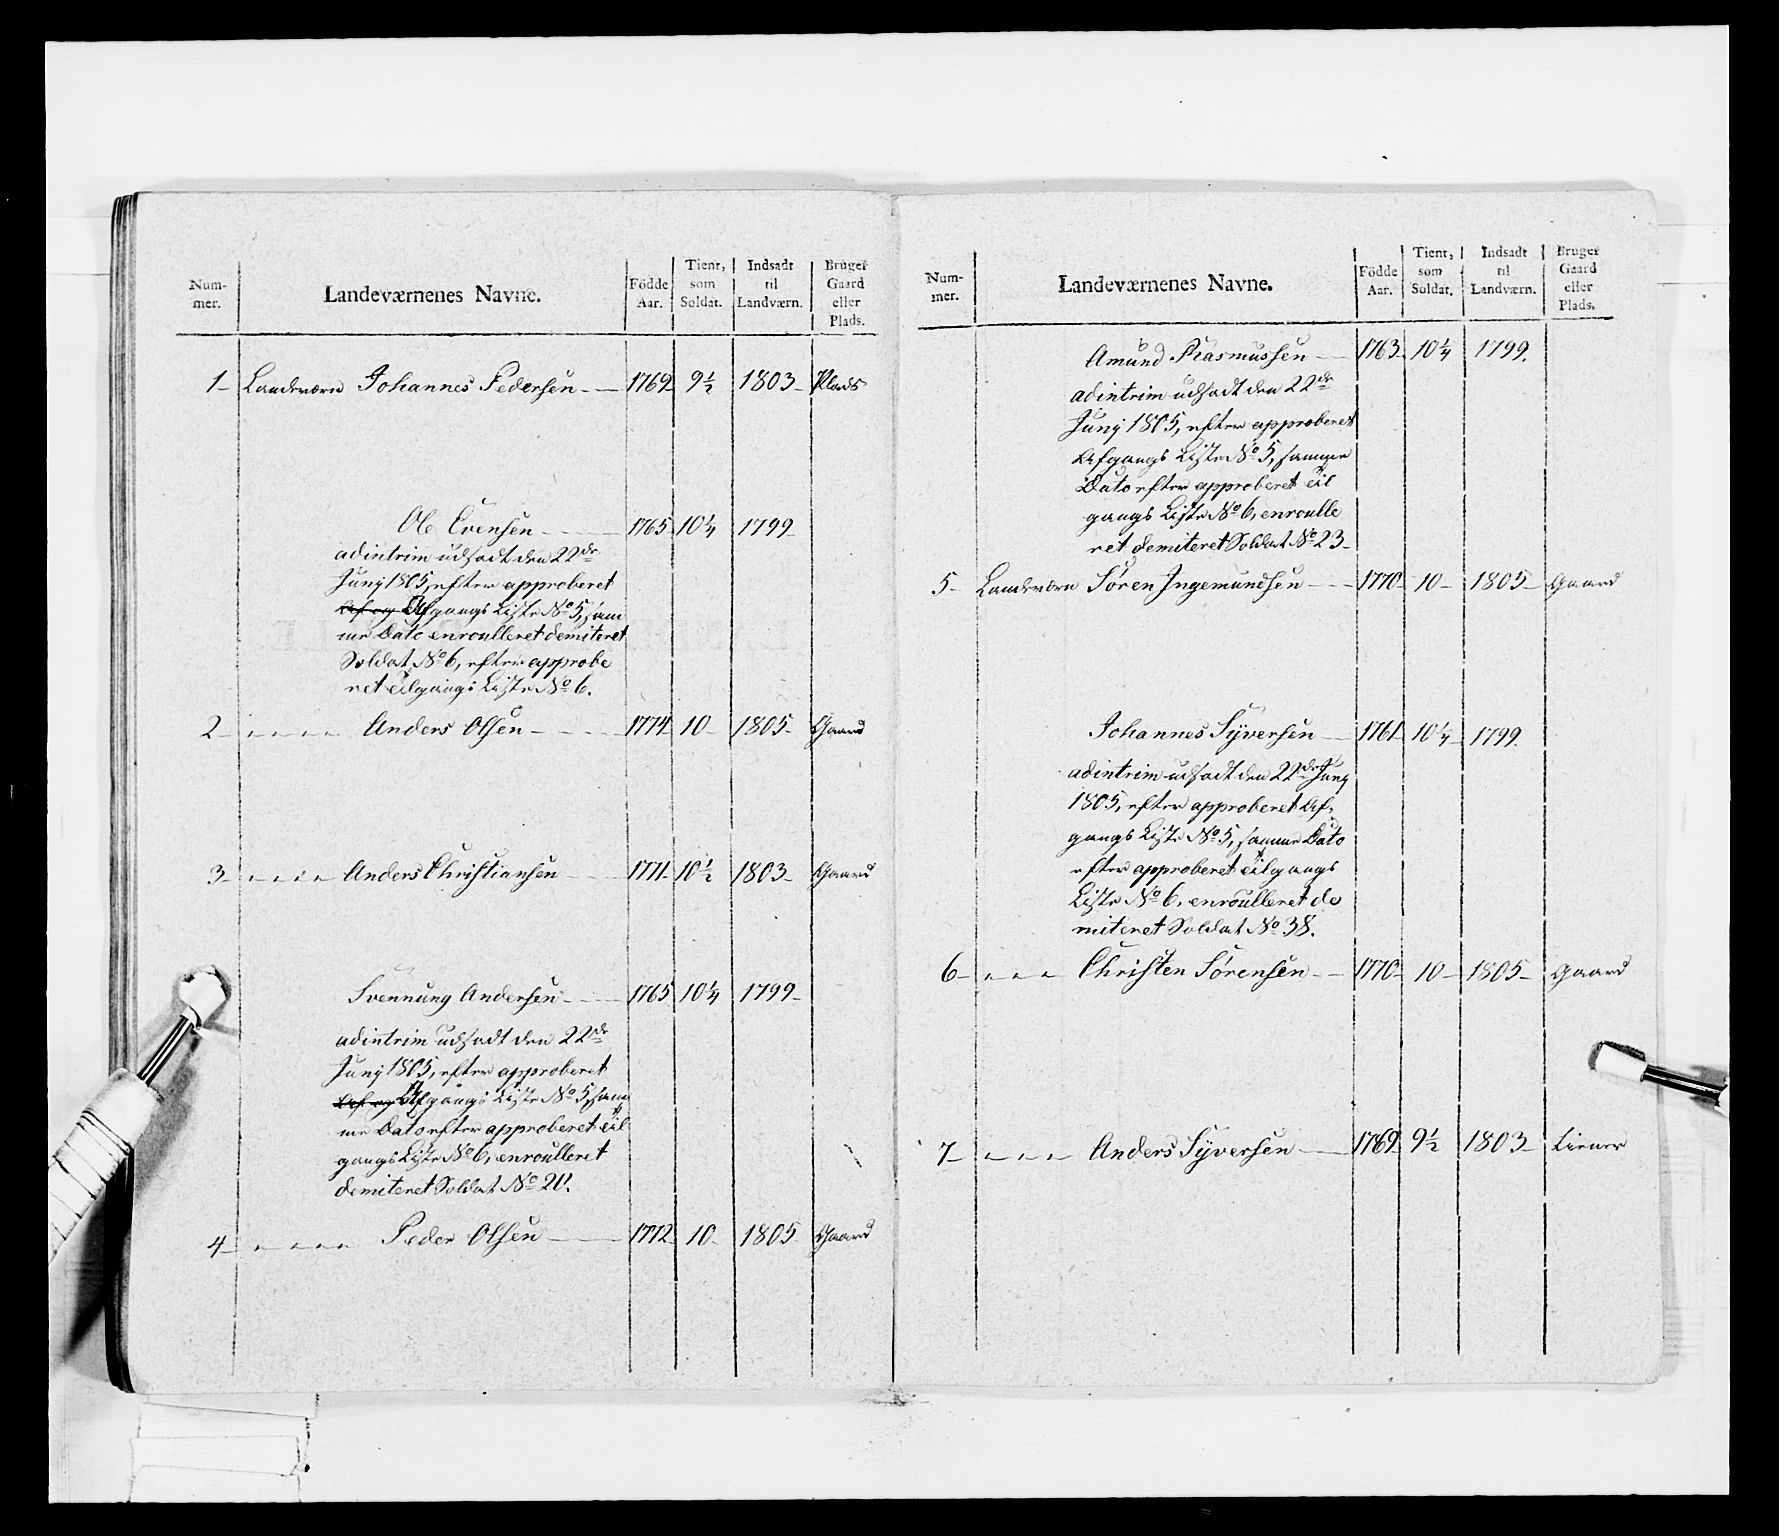 Num-
mer.
Landeværnenes Navne.
Födde
Aar.
Tient,
som
Soldat.
Indsadt
til
Landværn.
Bruger
Gaard
eller
Plads.
1 - Landeværn Johannes Pedersen - 1769 9½ 1803 - Plads
Ole Evensen - 1765 10¼ 1799 -
ad intrim udsadt den 22de
Junÿ 1805, efter approberet
Af og Afgangs Liste No 5, sam
me Dato enroulleret demiteret
Soldat No 6, efter approbe
ret Tilgangs Liste No 6.
2 - " " " " Anders Olsen - 1774 10 - 1805 - Gaard
3 - " " " " Anders Christiansen - 1771 - 10½ 1803 - Gaard
Svennung Andersen - 1765 10¼ 1799 -
ad intrim udsadt den 22de
Junÿ 1805, efter approberet
Af og Afgangs Liste No 5, sam
me Dato efter approberet Til
gangs Liste No 6, enroulleret
demiteret Soldat No 20.
4 - " " " " Peder Olsen - 1772 10 - 1805 Gaard
Num-
mer.
Landeværnenes Navne.
Födde
Aar.
Tient,
som
Soldat.
Indsadt
til
Landværn.
Bruger
Gaard
eller
Plads.
Amund Rasmussen - 1763 10¼ 1799.
ad intrim udsadt den 22de
Junÿ 1805, efter approberet
Afgangs Liste No 5, samme
Dato efter approberet Til
gangs Liste No 6, enroulle
ret demiteret Soldat No 23 -
5 - Landeværn Sören Ingemundsen - 1770 - 10 - 1805 - Gaard
Johannes Sÿversen - 1761 10¼ - 1799.
ad intrim udsadt den 22de Junÿ
1805, efter approberet Af-
gangs Liste No 5, samme Dato
efter approberet Tilgangs
Liste No 6, enroulleret de
miteret Soldat No 38.
6 - " " " Christen Sörensen - 1770 - 10 - 1805 - Gaard
7 - " " " Anders Sÿversen - 1769 9½ 1803 -